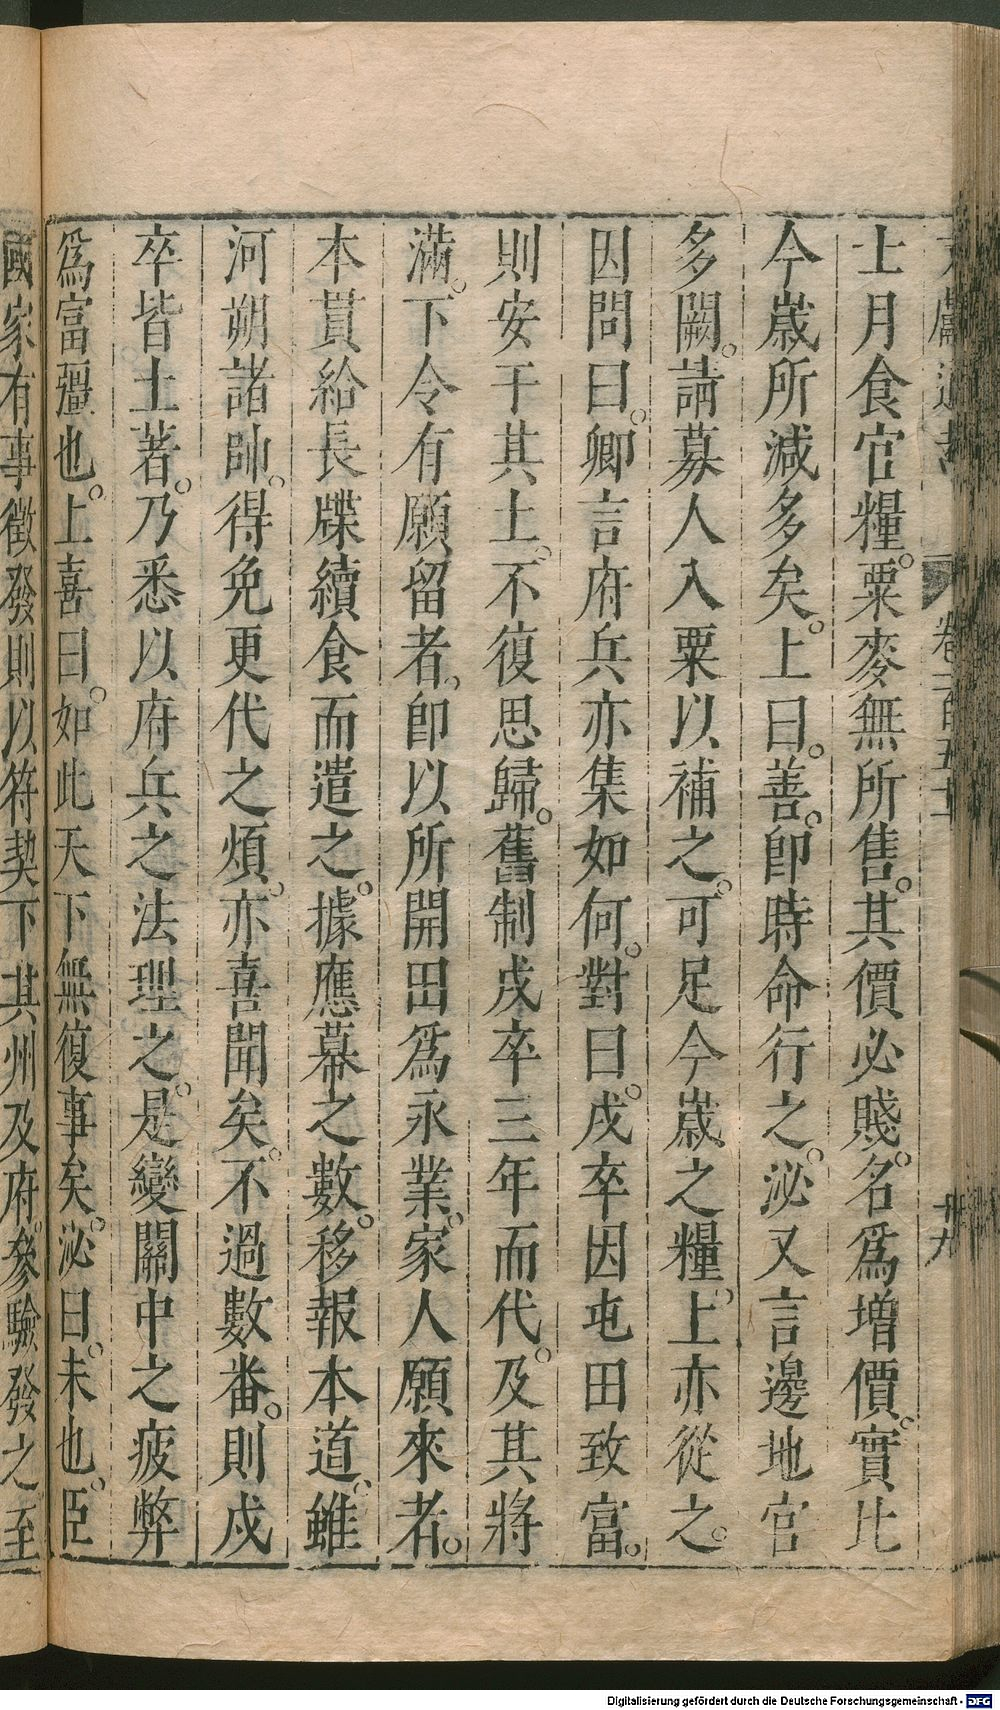 土月食官糧。粟麥無所售。其價必賤。名爲增價。實比
今歲所減多矣。上曰。善。卽時命行之。泌又言邊地官
多闕。請募人入粟以補之。可足今歲之糧。上亦從之。
因問曰。卿言府兵亦集如何。對曰。戍卒因屯田致富。
則安于其土。不復思歸。舊制戍卒三年而代。及其將
滿。下令有願留者。卽以所開田爲永業。家人願來者。
本貫給長牒續食而遣之。據應募之數。移報本道。雖
河朔諸帥。得免更代之煩。亦喜聞矣。不過數番。則戍
卒皆土著。乃悉以府兵之法理之。是變關中之疲弊
爲富彊也。上喜曰。如此天下無復事矣。泌曰。未也。臣
國家有事徵發則以符契下其州及府。參驗發之至
卷一百五十
卅九
Digitalisierung gefördert durch die Deutsche Forschungsgemeinschaft - DFG